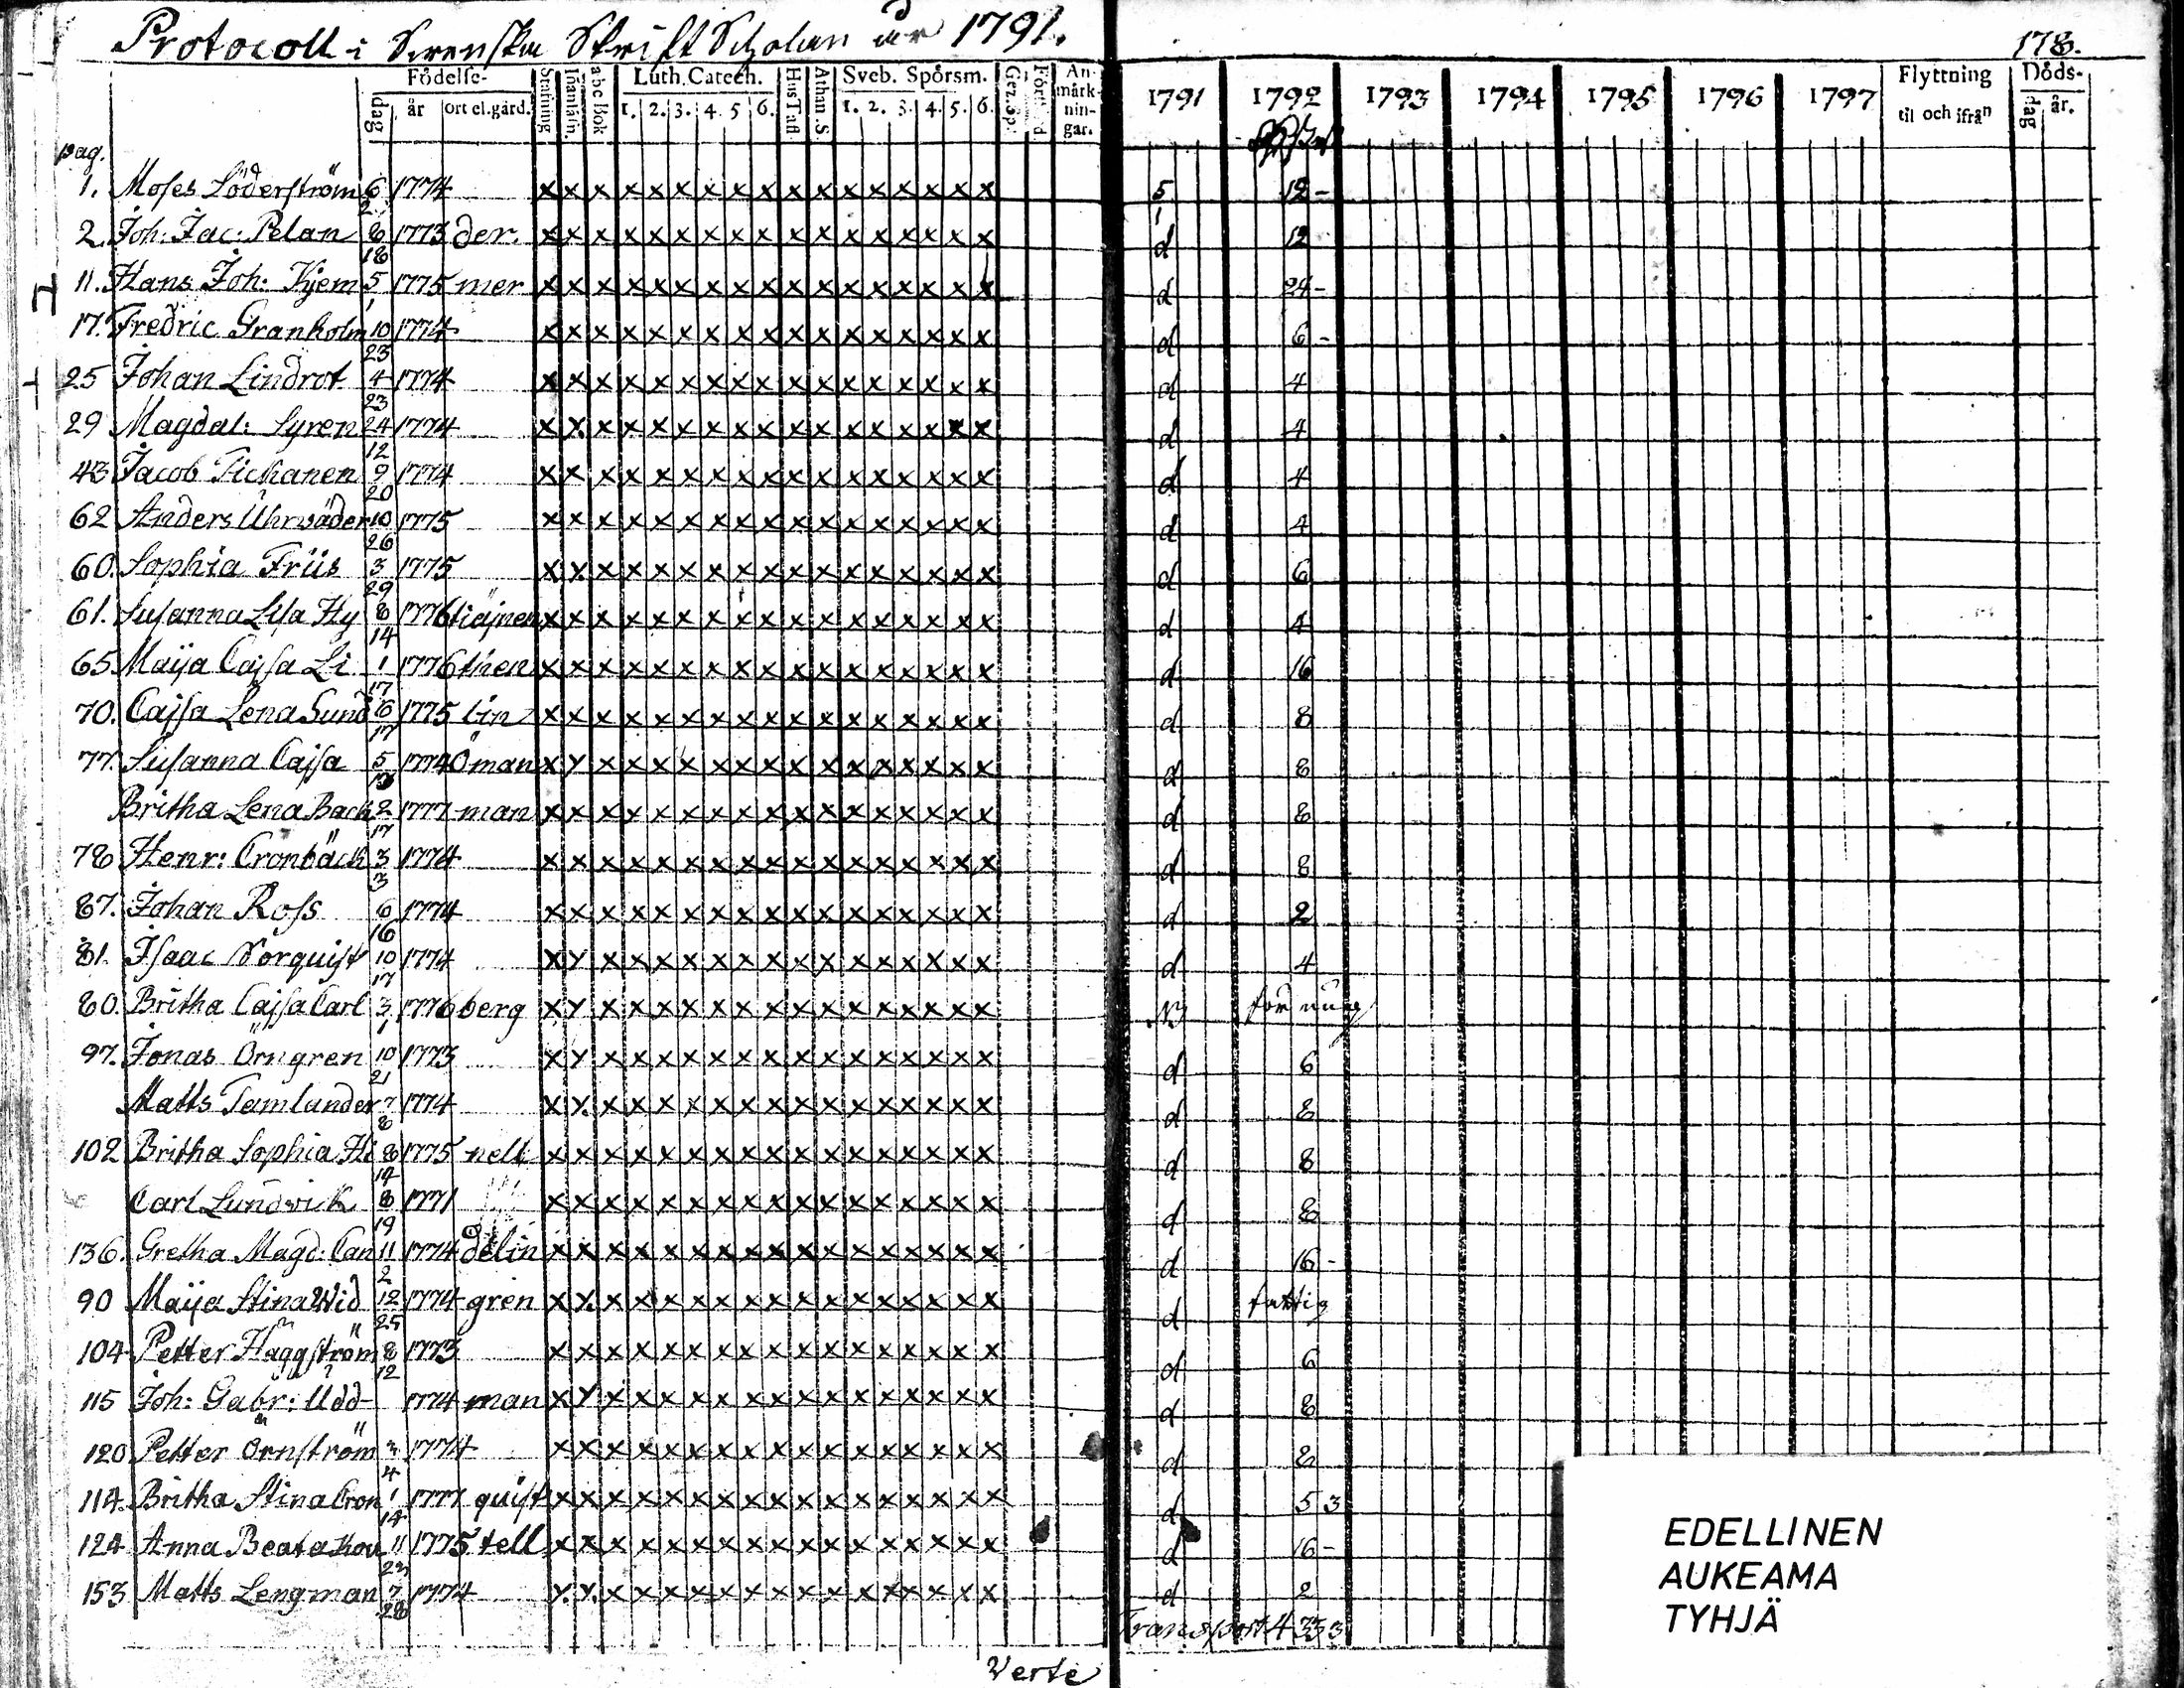 Protocoll i Svenska Skrift Scholan år 1791.
178.
Födelse-
dag
år
ort el. gård.
Stafning
Innanläsn.
abc Bok
Luth. Catech.
1. 2. 3. 4 5 6.
Hus Tafl
Athan. S
Sveb. Spörsm.
1. 2. 3. 4. 5. 6.
An-
märk-
nin-
gar.
1791 1792 1793 1794 1795 1796 1797
Flyttning
til och ifrån
Döds-
dag år.
pag.
1. Moses Söderström 6/2 1774 x x x x x x x x x x x x x x x x x 5/1 12-
2. Joh: Jac: Pelan 8/18 1773 der. x x x x x x x x x x x x x x x x x d 12
11. Hans Joh: Kjem 5/1 1775 mer x x x x x x x x x x x x x x x x x d 24-
17. Fredric Granholm 10/23 1774 x x x x x x x x x x x x x x x x x d 6-
25 Johan Lindrot 4/23 1774 x x x x x x x x x x x x x x x x x d 4
29 Magdal: Syren 24/12 1774 x x x x x x x x x x x x x x x x x d 4
43 Jacob Tickanen 9/20 1774 x x x x x x x x x x x x x x x x x d 4
62 Anders Uhrväder 10/26 1775 x x x x x x x x x x x x x x x x x d 4
60. Sophia Friis 3/29 1775 x x x x x x x x x x x x x x x x x d 6
61. Susanna Lisa Hy 8/14 1776 tiäinen x x x x x x x x x x x x x x x x x d 4
65 Maija Cajsa Li 1/17 1776 then x x x x x x x x x x x x x x x x x d 16
70. Cajsa Lena Sund 6/17 1775 lin x x x x x x x x x x x x x x x x x d 8
77. Susanna Cajsa 5 1774 Öman x x x x x x x x x x x x x x x x x d 8
Britha Lena Back 2/17 1777 man x x x x x x x x x x x x x x x x x d 8
78 Henr: Cronbäck 3/3 1774 x x x x x x x x x x x x x x x x x d 8
87. Johan Ross 6/16 1774 x x x x x x x x x x x x x x x x x d 2
81. Isaac Norquist 10/17 1774 x x x x x x x x x x x x x x x x x d 4
80. Britha Cajsa Carl 3/1 1776 berg x x x x x x x x x x x x x x x x x N för ung
97. Jonas Örngren 10/21 1773 x x x x x x x x x x x x x x x x x d 6
Matts Tamlander 7/8 1774 x x x x x x x x x x x x x x x x x d 8
102 Britha Sophia He 8/14 1775 nell x x x x x x x x x x x x x x x x x d 8
Carl Lundwick 8/19 1771 x x x x x x x x x x x x x x x x x d 8
136. Gretha Magd: Can 11/2 1774 delin x x x x x x x x x x x x x x x x x d 16-
90 Maija Stina Wid 12/25 1774 gren x x x x x x x x x x x x x x x x x d fattig
104 Petter Häggström 8/12 1773 x x x x x x x x x x x x x x x x x d 6
115 Joh: Gabr: Udd- 1774 man x x x x x x x x x x x x x x x x x d 8
120 Petter Örnström 3/4 1774 x x x x x x x x x x x x x x x x x d 8
114. Britha Stina Cron 1/14 1777 quist x x x x x x x x x x x x x x x x x d 5 3
124 Anna Beata Hou 11/23 1775 tell x x x x x x x x x x x x x x x x x d 16-
153 Matts Lengman 7/28 1774 x x x x x x x x x x x x x x x x x d 2
Transport 4 33 3
Verte
EDELLINEN
AUKEAMA
TYHJÄ